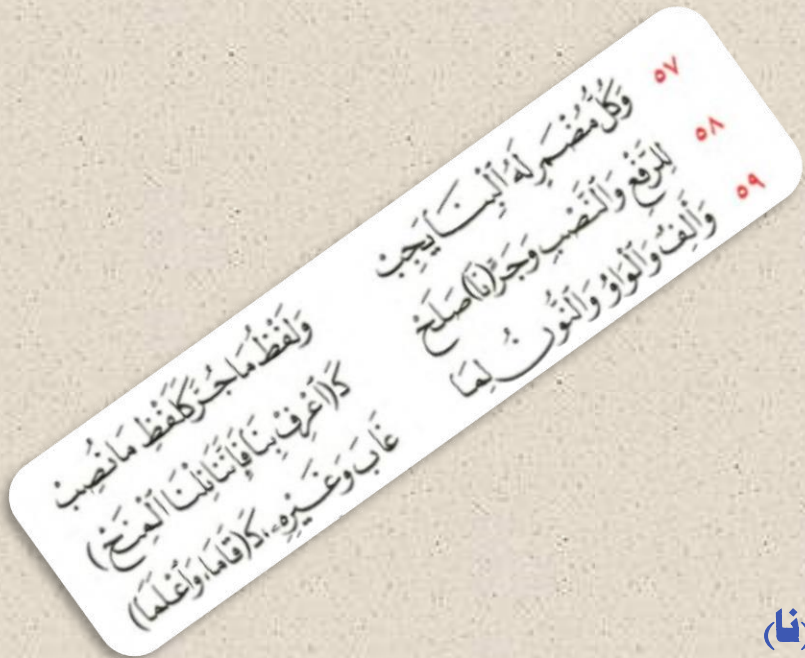 ٥٧ وَكُلُّ مُضْمَرٍ لَهُ الْبِنَا يَجِبْ وَلَفْظُ مَا جُرَّ كَلَفْظِ مَا نُصِبْ
٥٨ لِلرَّفْعِ وَالنَّصْبِ وَجَرٍّ (نَا) صَلَحْ كَـ(اعْرِفْ بِنَا فَإِنَّنَا نِلْنَا الْمِنَحْ)
٥٩ وَأَلِفٌ وَالْوَاوُ وَالنُّونُ لِمَا غَابَ وَغَيْرِهِ، كَـ(قَامَا، وَاعْلَمَا)
(نا)